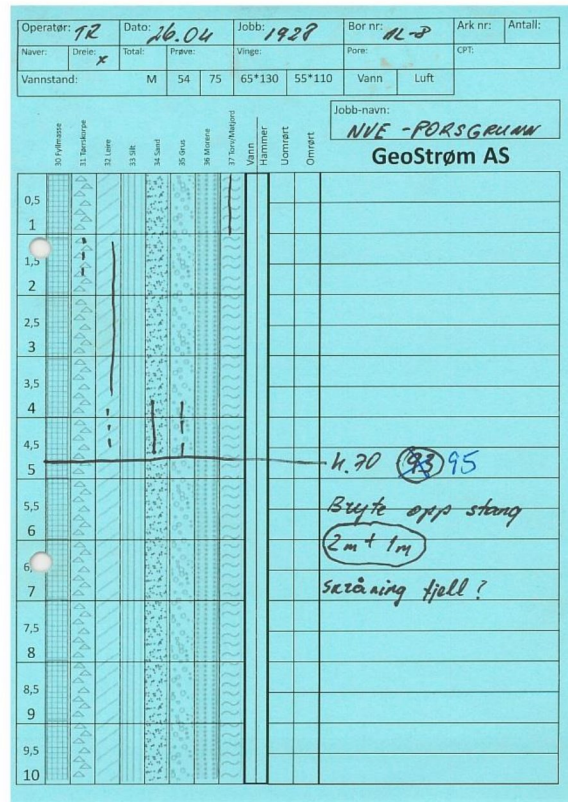 Operatør: TR Dato: 26.04 Jobb: 1928 Bor nr: NL-8 Ark nr: Antall:
Naver: Dreie: x Total: Prøve: Vinge: Pore: CPT:
Vannstand: M 54 75 65*130 55*110 Vann Luft
Jobb-navn:
NVE - PORSGRUNN
GeoStrøm AS
30 Fyllmasse
31 Tørrskorpe
32 Leire
33 Silt
34 Sand
35 Grus
36 Morene
37 Torv/Matjord
Vann
Hammer
Uomrørt
Omrørt
0,5
1
1,5
2
2,5
3
3,5
4
4,5
5
4.70 93 95
5,5
Bryte opp stang
6
2m + 1m
6,
skråning fjell?
7
7,5
8
8,5
9
9,5
10